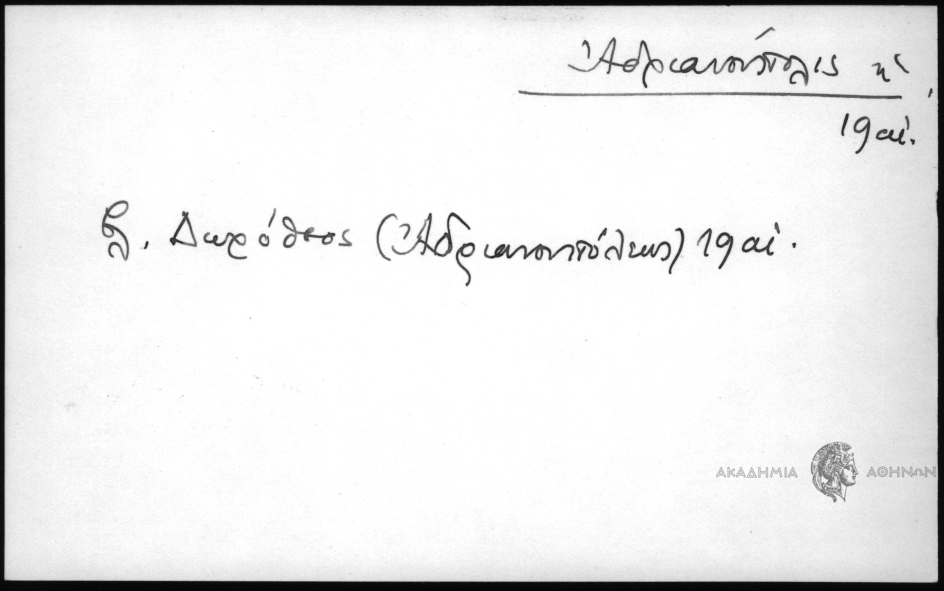 Ἀδριανούπολις
19 αἰ.
βλ. Δωρόθεος (Ἀδριανουπόλεως) 19 αἰ.
ΑΚΑΔΗΜΙΑ ΑΘΗΝΩΝ